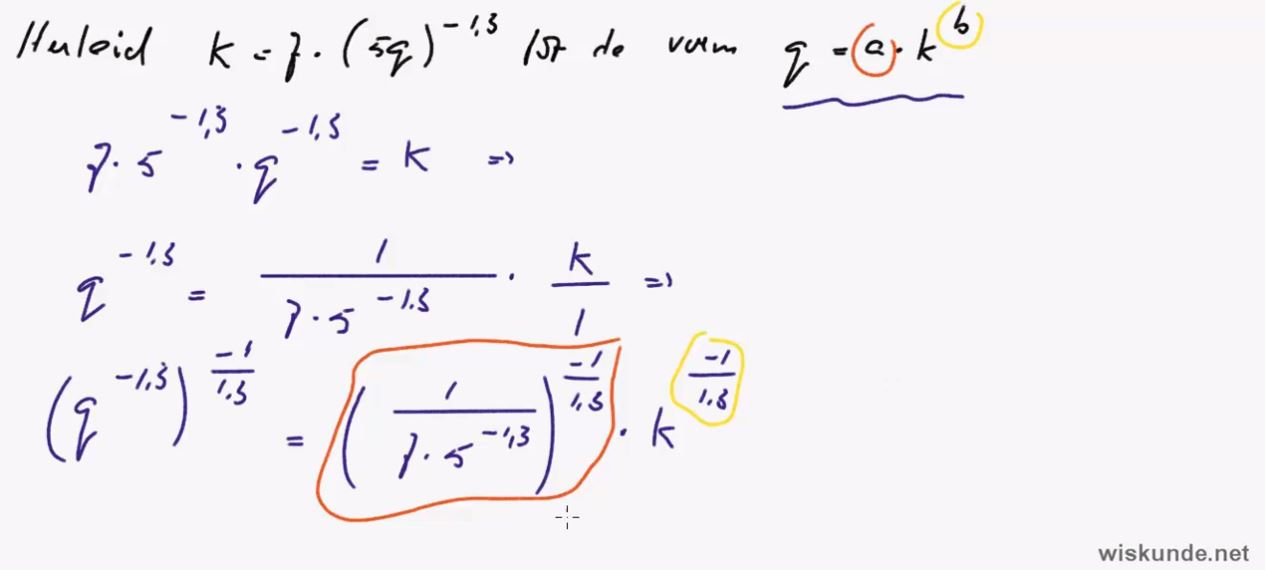 Herleid K = 7 · (5q)^-1,3 tot de vorm q = a · k^b
7 · 5^-1,3 · q^-1,3 = K =>
q^-1.3 = 1 / (7 · 5^-1.3) · k / 1 =>
(q^-1,3)^(-1/1.3) = (1 / (7 · 5^-1,3))^(-1/1,3) · k^(-1/1.3)
wiskunde.net